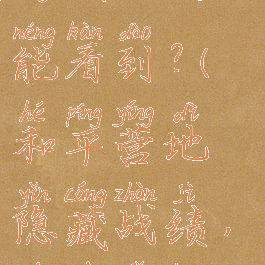 néng kàn dào
能看到?(
hé píng yíng dì
和平营地
yǐn cáng zhàn jì
隐藏战绩,